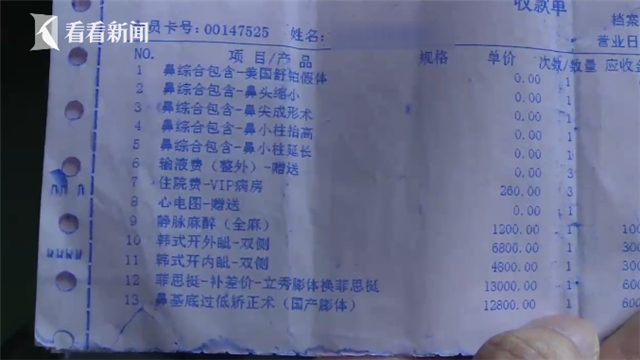 看看新闻
收款单
员卡号：00147525 姓名： 档案
营业日
NO. 项目/产品 规格 单价 次数/数量 应收金
1 鼻综合包含-美国舒铂假体 0.00 1
2 鼻综合包含-鼻头缩小 0.00 1
3 鼻综合包含-鼻尖成形术 0.00 1
4 鼻综合包含-鼻小柱抬高 0.00 1
5 鼻综合包含-鼻小柱延长 0.00 1
6 输液费（整外）-赠送 0.00 3
7 住院费-VIP病房 260.00 3
8 心电图-赠送 0.00 1
9 静脉麻醉（全麻） 1200.00 1
10 韩式开外眦-双侧 6800.00 1
11 韩式开内眦-双侧 4800.00 1
12 菲思挺-补差价-立秀膨体换菲思挺 13000.00 1
13 鼻基底过低矫正术（国产膨体） 12800.00 1